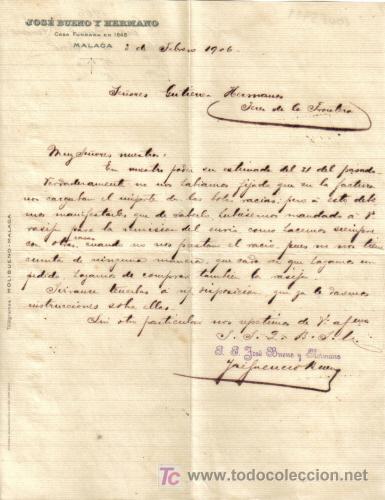 JOSÉ BUENO Y HERMANO
CASA FUNDADA EN 1845
MALAGA
2 de Febrero 1906
Señores Gutierrez Hermanos
Jerez de la Frontera
Muy Señores nuestros:
En nuestro poder su estimada del 21 del pasado
Verdaderamente no nos habiamos fijado que en la factura
nos cargaban el importe de las botas vacias; pero á esto debe-
mos manifestarle que de saberlo, hubiesemos mandado á Vd
vasijas para la remision del envio como hacemos siempre
con otras casas cuando no nos prestan el vacio, pues no nos tiene
cuenta de ninguna manera, que cada vez que hagamos un
pedido hagamos de comprar tambien la vasija.
Sirvanse tenerlas á ni disposicion, que ya le daremos
instrucciones sobre ellas.
Sin otro particular nos repetimos de Vd afmos
S. S. Q. B. S. M.
P. P. José Bueno y Hermano
Telegramas: HOLIBUENO-MALAGA
TC
PROHIBIDA SU REPRODUCCIÓN
www.todocoleccion.net